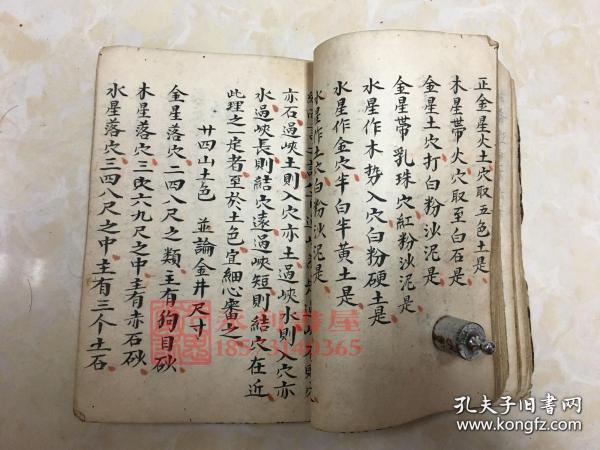 正金星火土穴取五色土是
木星帶火穴取至白石是
金星土穴打白粉沙泥是
金星帶乳珠穴紅粉沙泥是
水星作木势入穴白粉硬土是
水星作金穴半白半黄土是
水星作土穴白粉沙泥是
亦石過峽土則入穴亦土過峽水則入穴亦
水過峽長則結穴遠過峽短則結穴在近
此理之一定者至於土色宜細心審之
廿四山土色 並論金井尺寸
金星落穴二四八尺之類主有狗目砂
木星落穴三六九尺之中主有赤石砂
水星落穴三四八尺之中主有三个土石
18573140365
孔夫子旧书网
www.kongfz.com